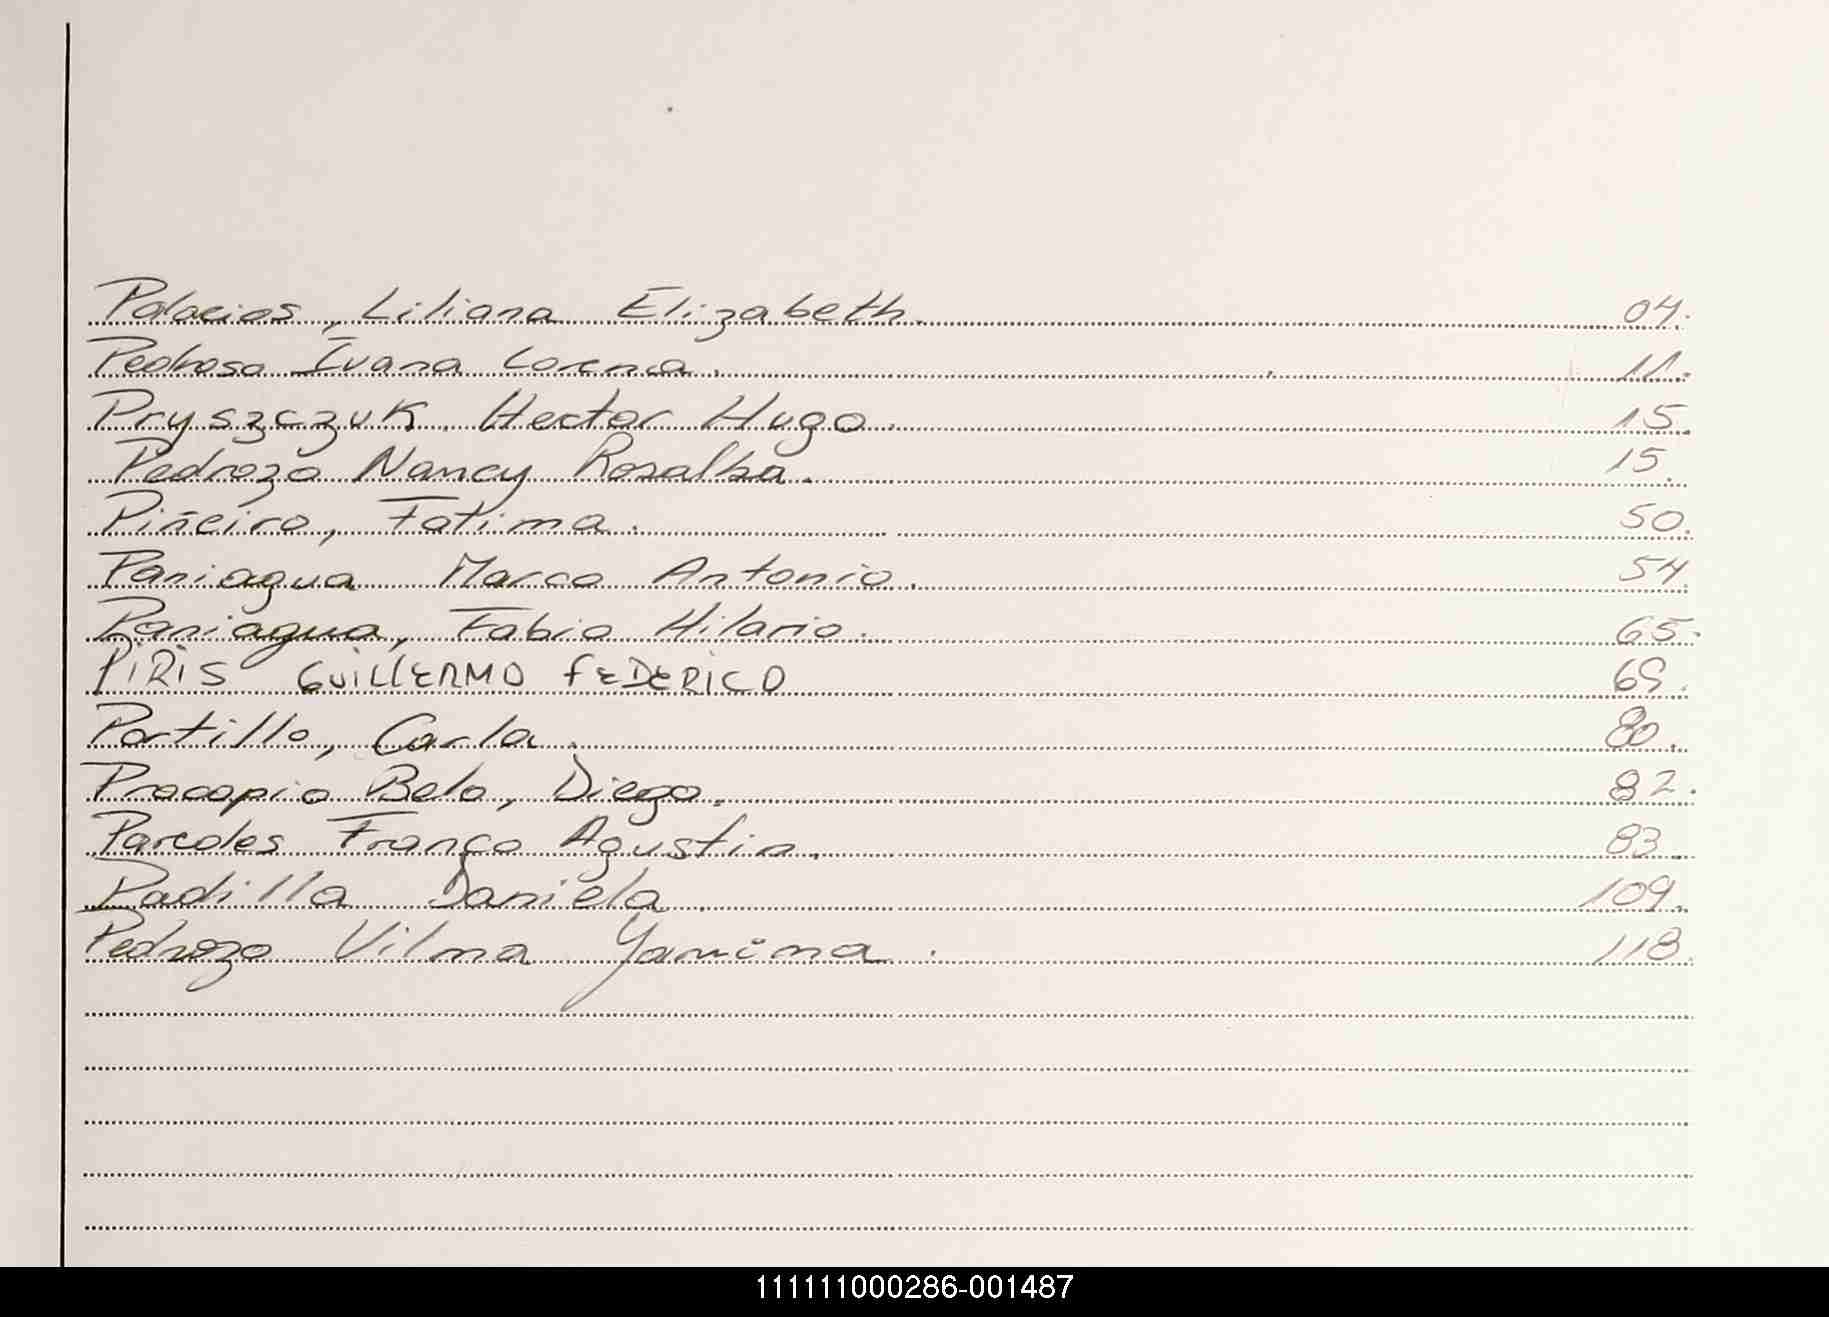 Palacios, Liliana Elizabeth. 04.
Pedroso Ivana Lorena. 11.
Pryszczuk Hector Hugo. 15.
Pedrozo Nancy Rosalba. 15.
Piñeiro, Fatima. 50.
Paniagua Marco Antonio. 54.
Paniagua, Fabio Hilario. 65.
PIRIS GUILLERMO FEDERICO 69.
Portillo, Carla. 80.
Procopio Belo, Diego. 82.
Paredes Franco Agustin. 83.
Padilla Daniela. 109.
Pedrozo Vilma Yamina. 118.
111111000286-001487